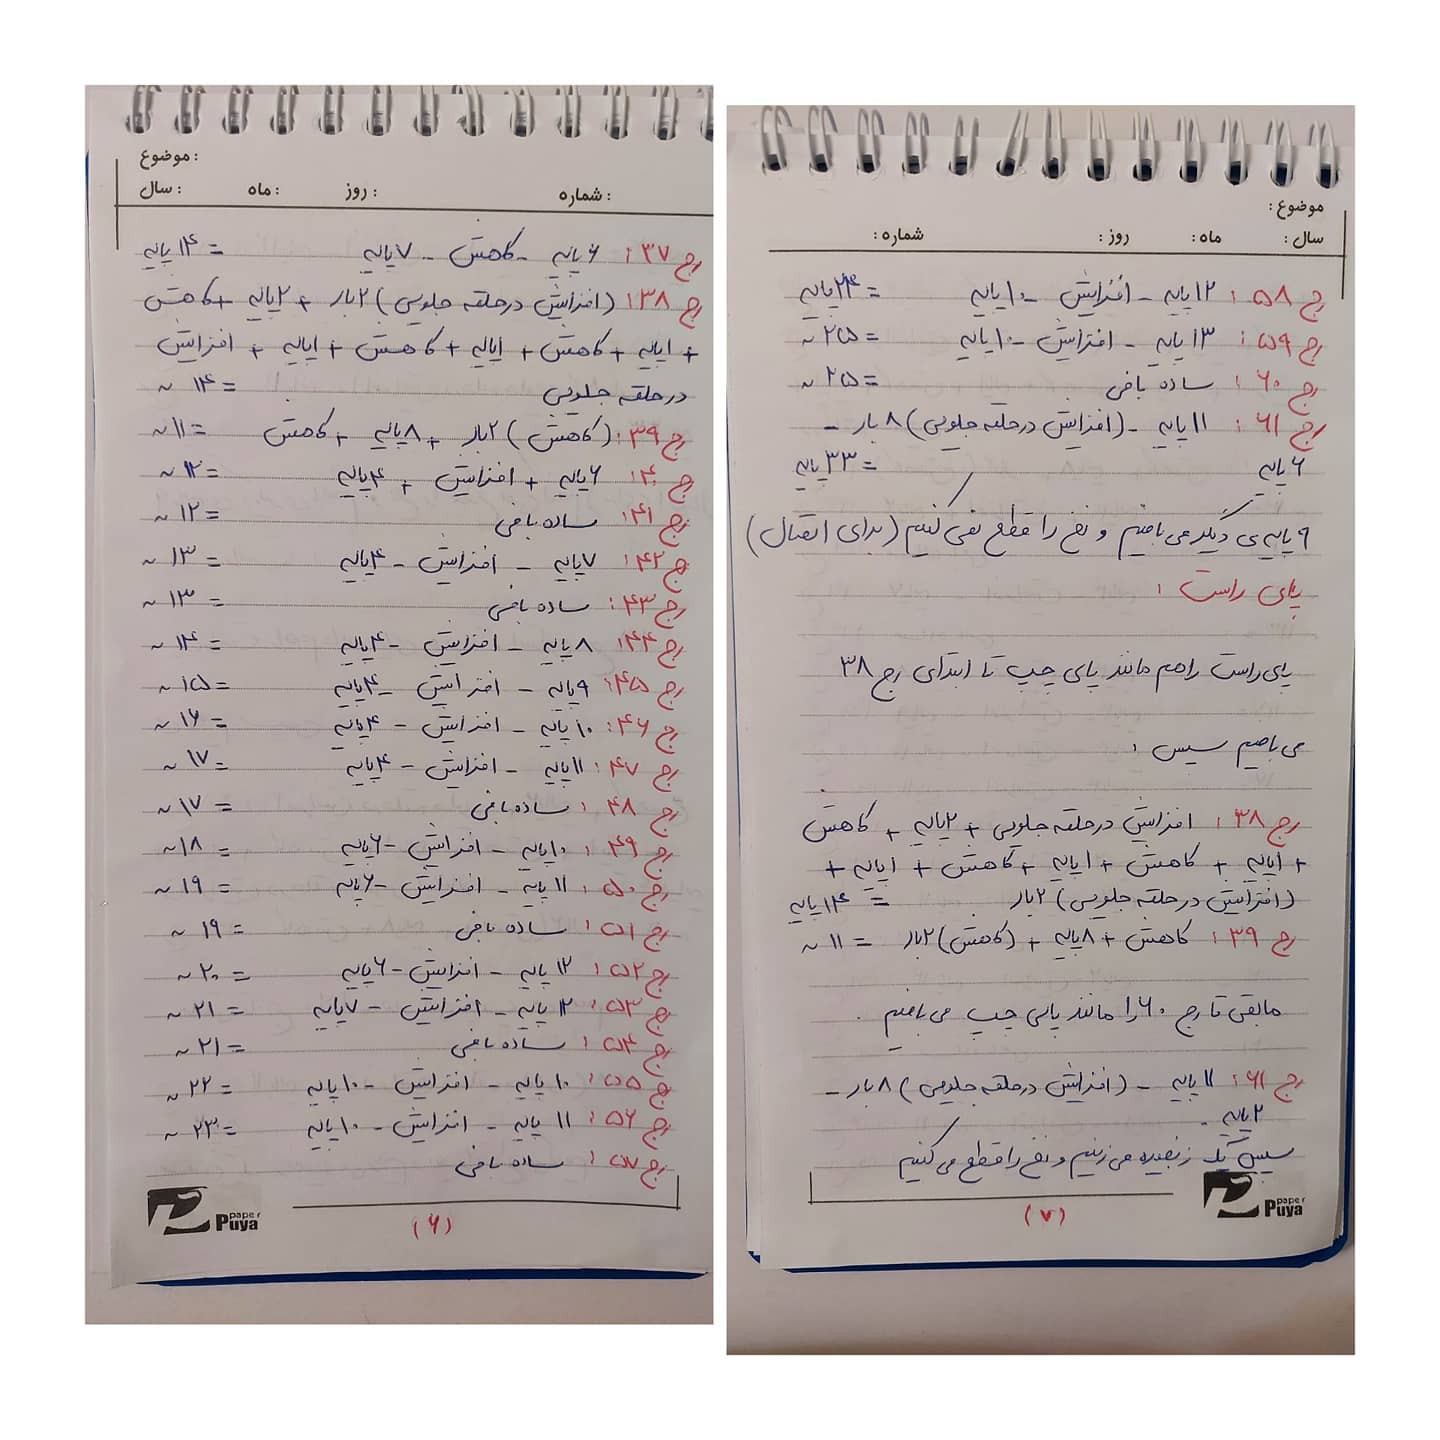 موضوع :
سال : ماه : روز : شماره :
رج ۳۷: ۶ پایه - کاهش - ۷ پایه = ۱۴ پایه
رج ۳۸: (افزایش در حلقه جلویی) ۲ بار + ۲ پایه + کاهش
+ ۱ پایه + کاهش + ۱ پایه + کاهش + ۱ پایه + افزایش
در حلقه جلویی = ۱۴ ~
رج ۳۹: (کاهش) ۲ بار + ۸ پایه + کاهش = ۱۱ ~
رج ۴۰: ۶ پایه + افزایش + ۴ پایه = ۱۲ ~
رج ۴۱: ساده بافی = ۱۲ ~
رج ۴۲: ۷ پایه - افزایش - ۴ پایه = ۱۳ ~
رج ۴۳: ساده بافی = ۱۳ ~
رج ۴۴: ۸ پایه - افزایش - ۴ پایه = ۱۴ ~
رج ۴۵: ۹ پایه - افزایش - ۴ پایه = ۱۵ ~
رج ۴۶: ۱۰ پایه - افزایش - ۴ پایه = ۱۶ ~
رج ۴۷: ۱۱ پایه - افزایش - ۴ پایه = ۱۷ ~
رج ۴۸: ساده بافی = ۱۷ ~
رج ۴۹: ۱۰ پایه - افزایش - ۶ پایه = ۱۸ ~
رج ۵۰: ۱۱ پایه - افزایش - ۶ پایه = ۱۹ ~
رج ۵۱: ساده بافی = ۱۹ ~
رج ۵۲: ۱۲ پایه - افزایش - ۶ پایه = ۲۰ ~
رج ۵۳: ۱۲ پایه - افزایش - ۷ پایه = ۲۱ ~
رج ۵۴: ساده بافی = ۲۱ ~
رج ۵۵: ۱۰ پایه - افزایش - ۱۰ پایه = ۲۲ ~
رج ۵۶: ۱۱ پایه - افزایش - ۱۰ پایه = ۲۳ ~
رج ۵۷: ساده بافی
paper
Puya
(۶)
موضوع :
سال : ماه : روز : شماره :
رج ۵۸: ۱۲ پایه - افزایش - ۱۰ پایه = ۲۴ پایه
رج ۵۹: ۱۳ پایه - افزایش - ۱۰ پایه = ۲۵ ~
رج ۶۰: ساده بافی = ۲۵ ~
رج ۶۱: ۱۱ پایه - (افزایش در حلقه جلویی) ۸ بار -
۶ پایه = ۳۳ پایه
۹ پایه ی دیگر می بافیم و نخ را قطع نمی کنیم (برای اتصال)
پای راست :
پای راست را هم مانند پای چپ تا ابتدای رج ۳۸
می بافیم سپس :
رج ۳۸: افزایش در حلقه جلویی + ۲ پایه + کاهش
+ ۱ پایه + کاهش + ۱ پایه + کاهش + ۱ پایه +
(افزایش در حلقه جلویی) ۲ بار = ۱۴ پایه
رج ۳۹: کاهش + ۸ پایه + (کاهش) ۲ بار = ۱۱ ~
مابقی تا رج ۶۰ را مانند پای چپ می بافیم .
رج ۶۱: ۱۱ پایه - (افزایش در حلقه جلویی) ۸ بار -
۲ پایه .
سپس یک زنجیره می زنیم و نخ را قطع می کنیم
paper
Puya
(۷)